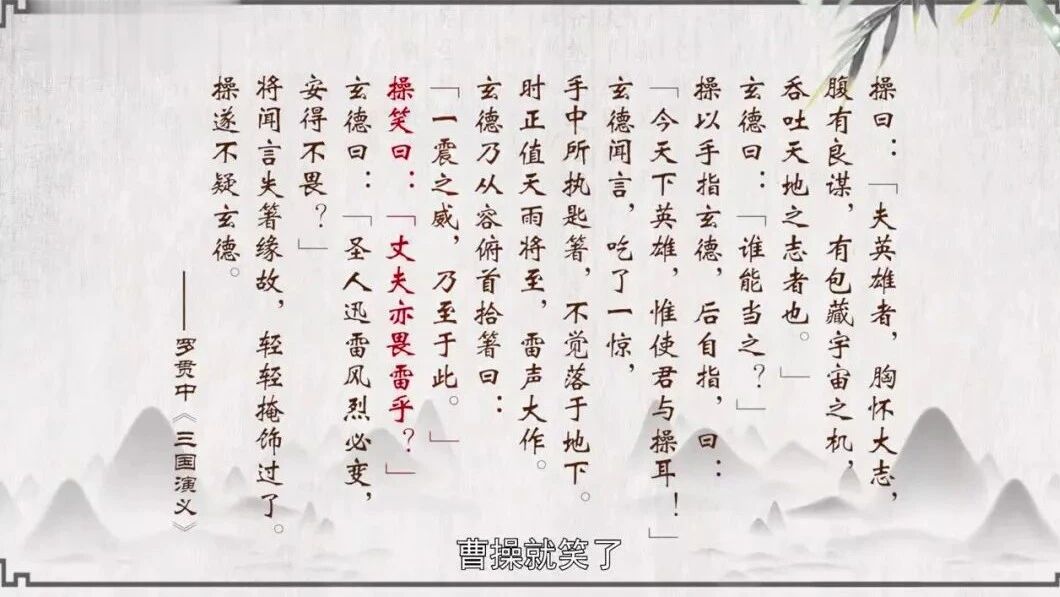 操曰：「夫英雄者，胸怀大志，
腹有良谋，有包藏宇宙之机，
吞吐天地之志者也。」
玄德曰：「谁能当之？」
操以手指玄德，后自指，曰：
「今天下英雄，惟使君与操耳！」
玄德闻言，吃了一惊，
手中所执匙箸，不觉落于地下。
时正值天雨将至，雷声大作。
玄德乃从容俯首拾箸曰：
「一震之威，乃至于此。」
操笑曰：「丈夫亦畏雷乎？」
玄德曰：「圣人迅雷风烈必变，
安得不畏？」
将闻言失箸缘故，轻轻掩饰过了。
操遂不疑玄德。
——罗贯中《三国演义》
曹操就笑了